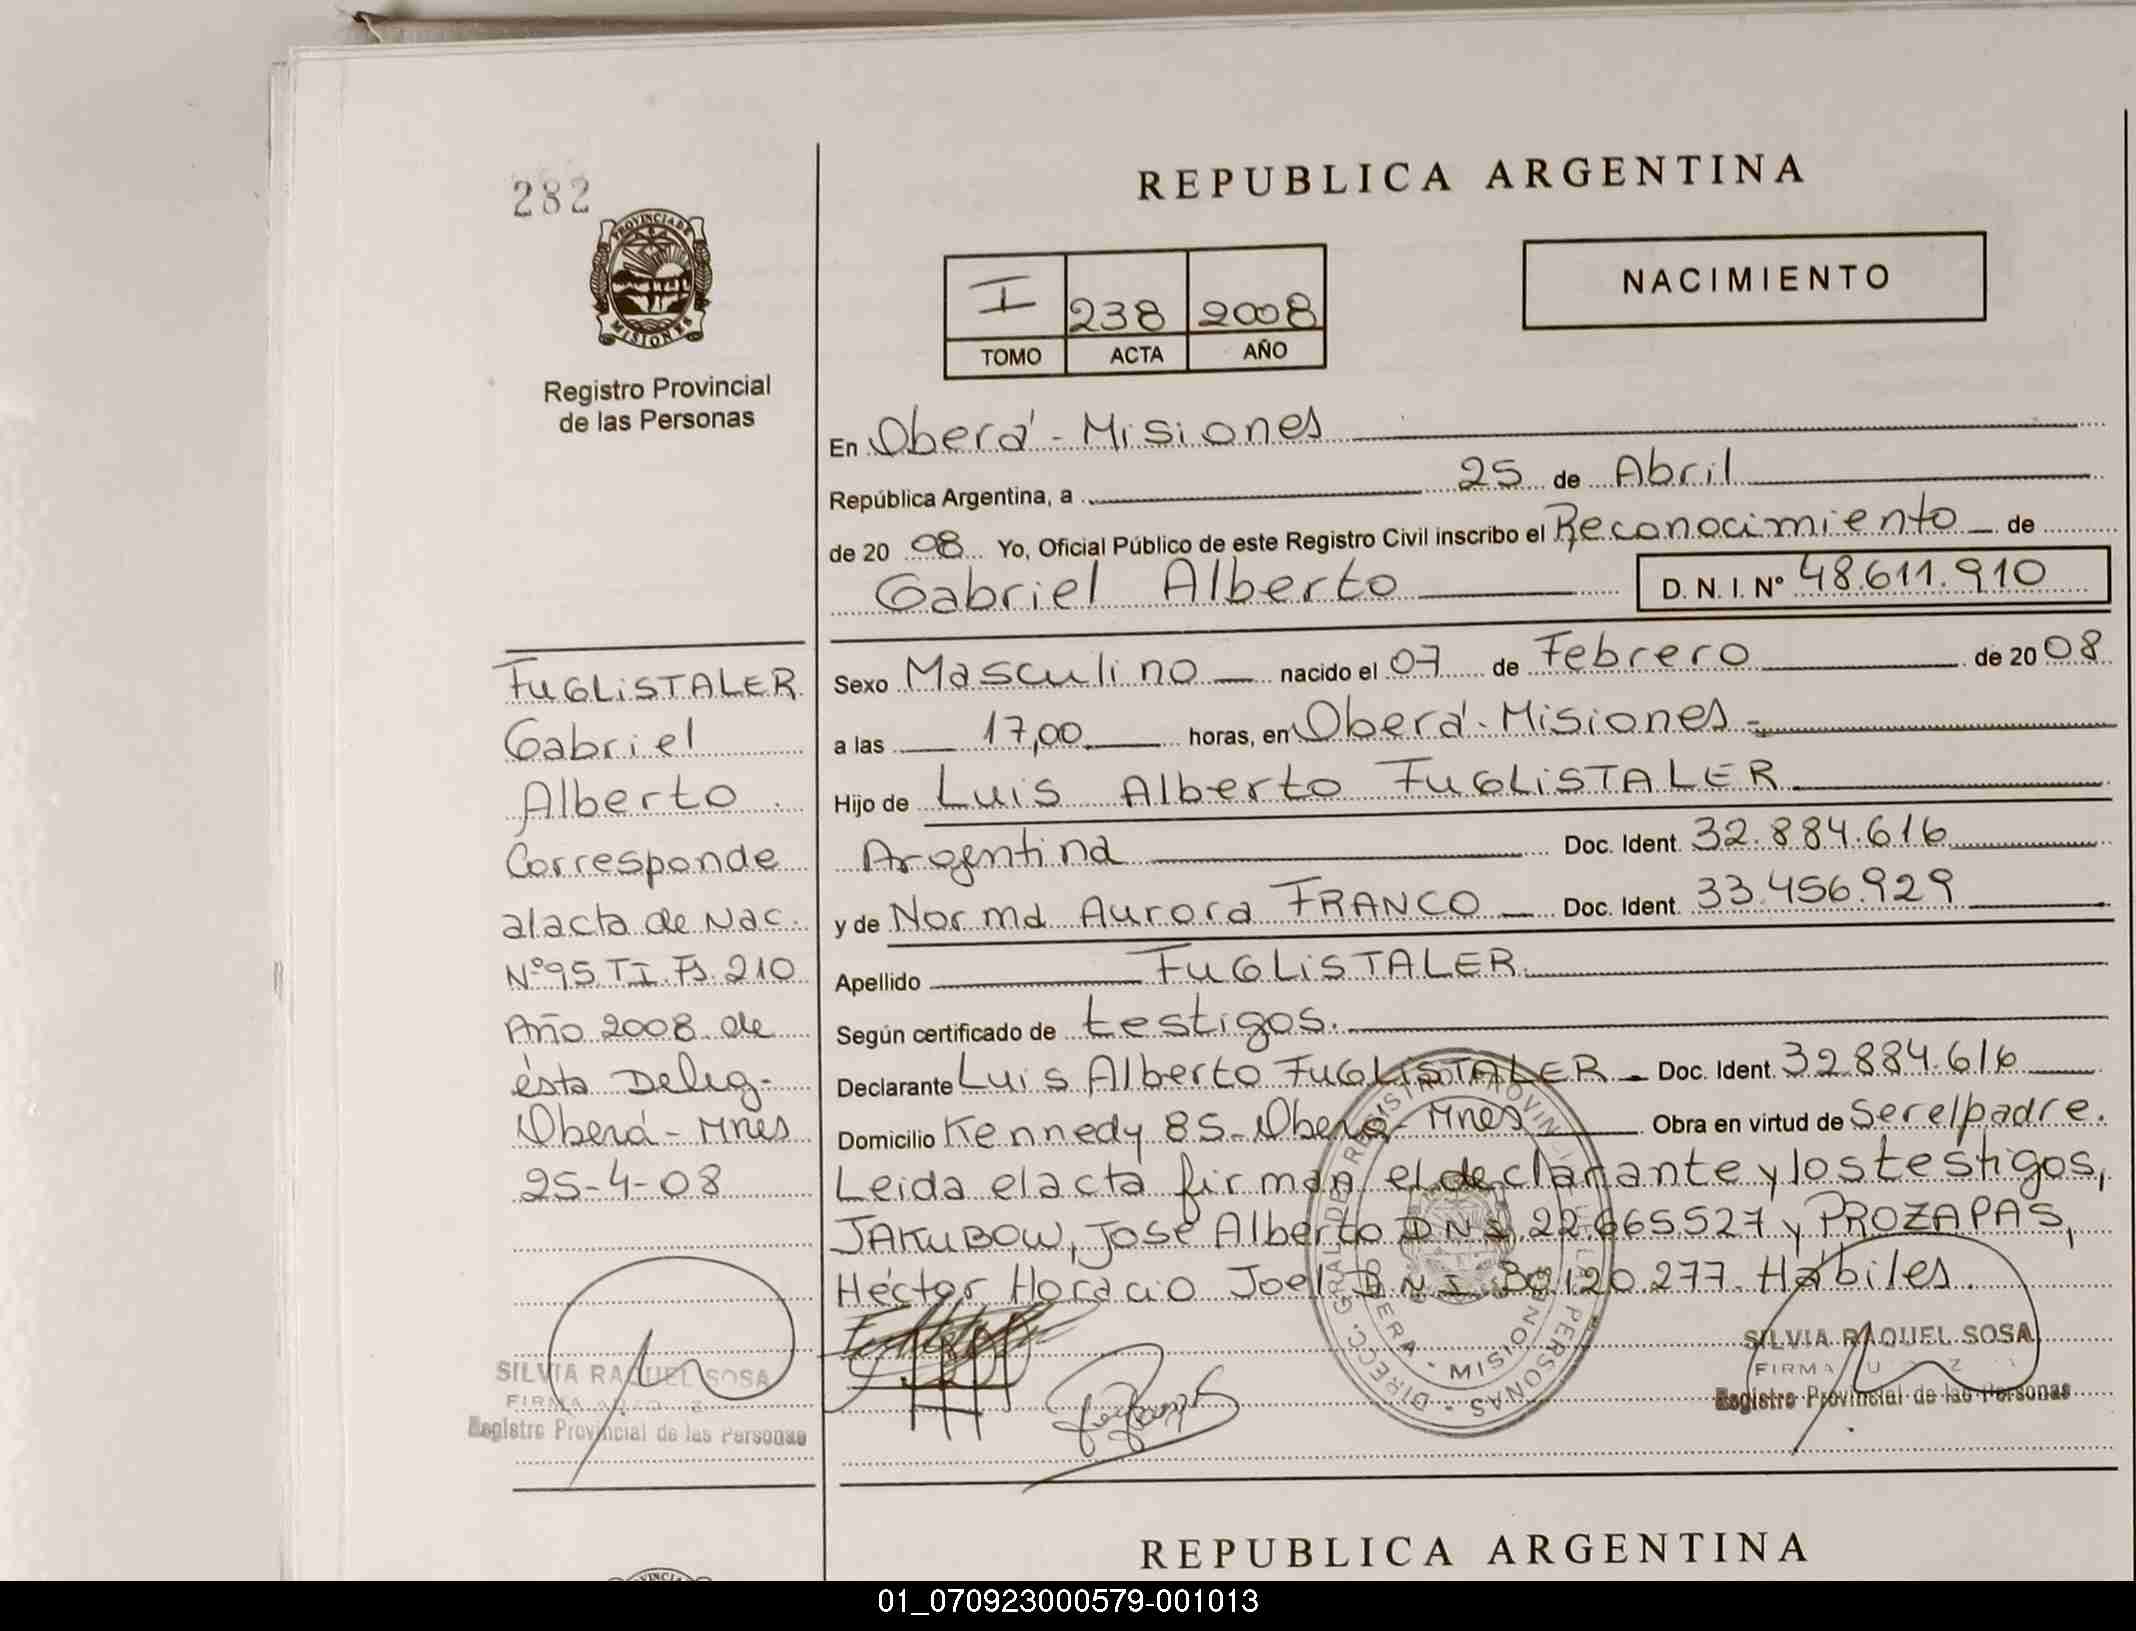 282
PROVINCIA DE
MISIONES
Registro Provincial
de las Personas
REPUBLICA ARGENTINA
I 238 2008
TOMO ACTA AÑO
NACIMIENTO
En Oberá - Misiones
República Argentina, a 25 de Abril
de 20 08 Yo, Oficial Público de este Registro Civil inscribo el Reconocimiento de
Gabriel Alberto D. N. I. Nº 48.611.910
Sexo Masculino nacido el 07 de Febrero de 20 08
a las 17,00 horas, en Oberá - Misiones
Hijo de Luis Alberto FUGLISTALER
Argentina Doc. Ident. 32.884.616
y de Norma Aurora FRANCO Doc. Ident. 33.456.929
Apellido FUGLISTALER
Según certificado de testigos.
Declarante Luis Alberto FUGLISTALER Doc. Ident. 32.884.616
Domicilio Kennedy 85 - Oberá - Mnes Obra en virtud de Ser el padre.
Leida el acta firman el declarante y los testigos,
JAKUBOW, José Alberto D.N.I. 22.665.527 y PROZAPAS,
Héctor Horacio Joel D.N.I. 30.120.277. Hábiles.
SILVIA RAQUEL SOSA
FIRMA
Registro Provincial de las Personas
FUGLISTALER
Gabriel
Alberto
Corresponde
al acta de Nac.
Nº 95 T I. Fs. 210
Año 2008 de
ésta Deleg-
Oberá - Mnes
25-4-08
SILVIA RAQUEL SOSA
FIRMA
Registro Provincial de las Personas
DIRECC. GRAL DE REGISTRO PROVINCIAL PERSONAS
OBERA - MISIONES
REPUBLICA ARGENTINA
01_070923000579-001013